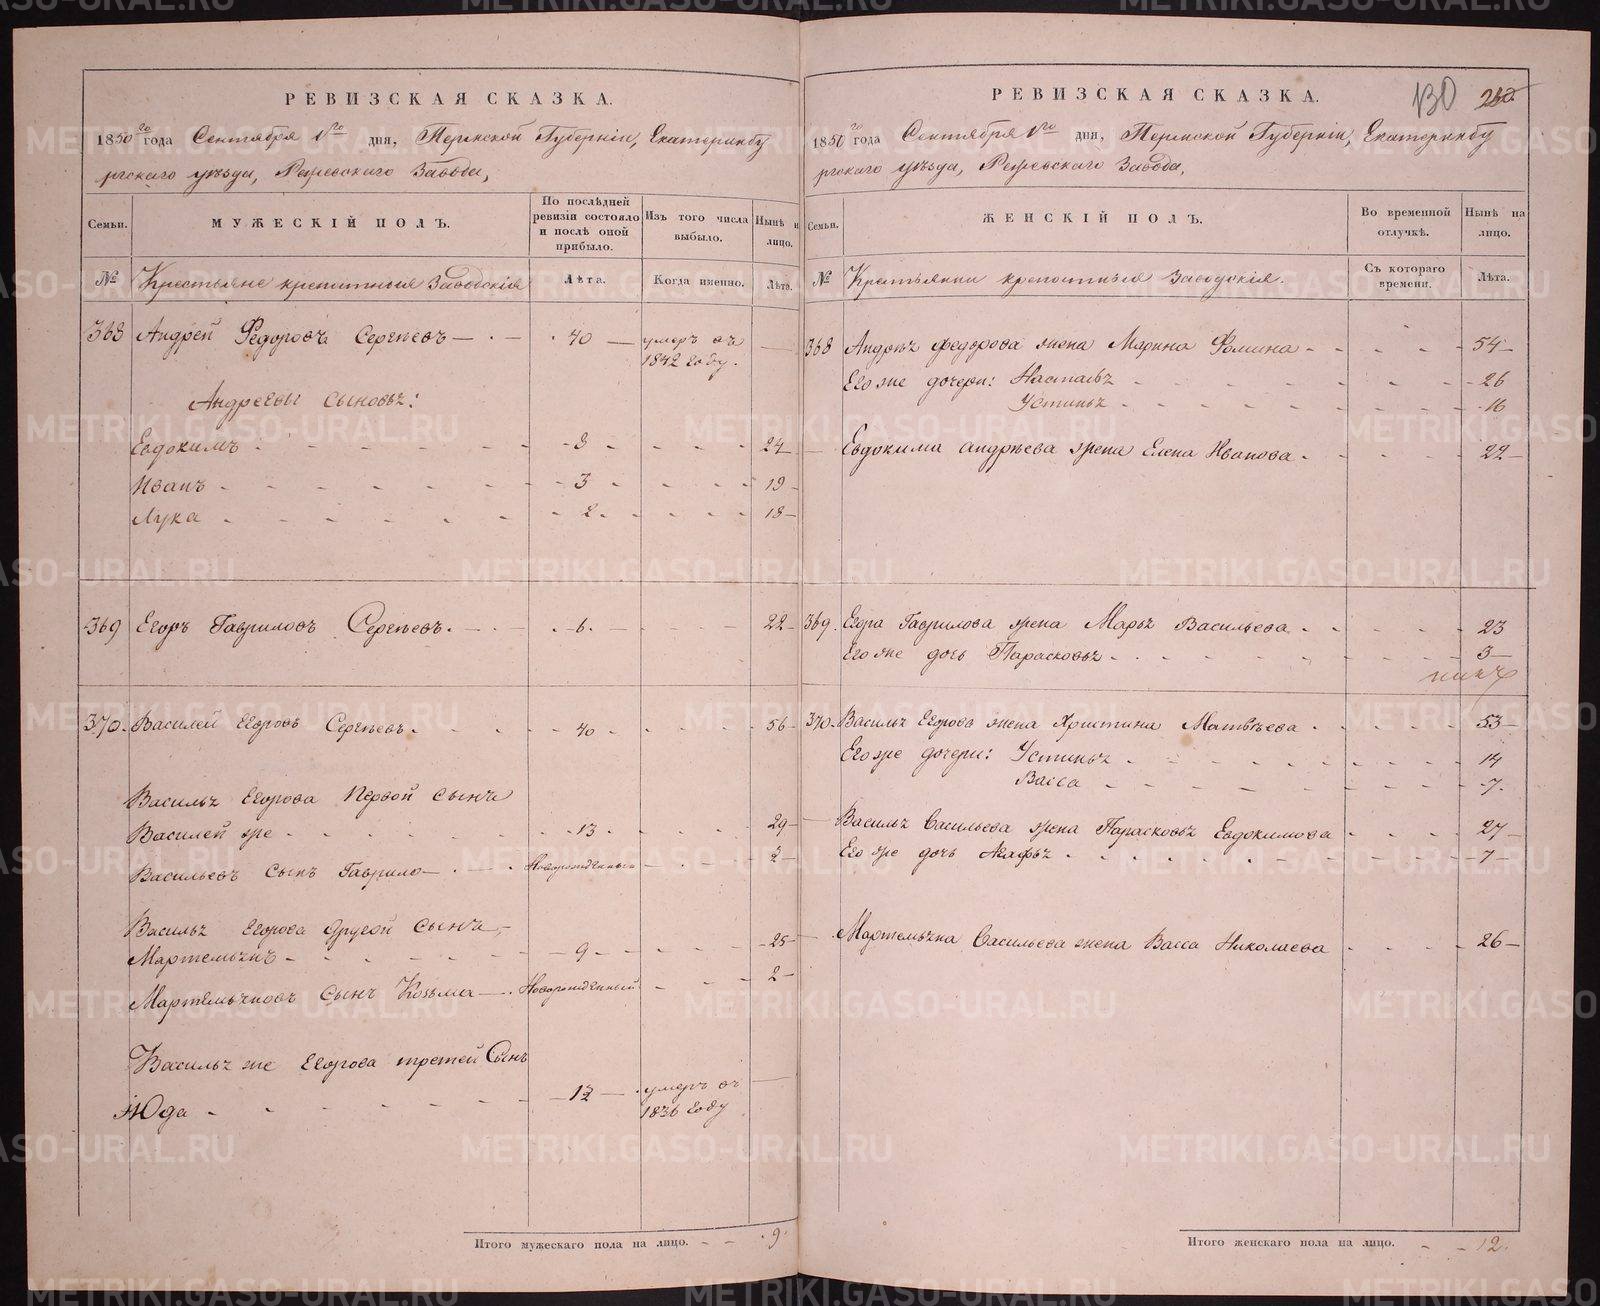 РЕВИЗСКАЯ СКАЗКА.
1850го года Сентября 1го дня, Пермской Губерніи, Екатеринбу
ргскаго уѣзда, Режевскаго Завода,
Семьи.
МУЖЕСКІЙ ПОЛЪ.
По послѣдней ревизіи состояло и послѣ оной прибыло.
Изъ того числа выбыло.
Нынѣ н лицо.
№
Крестьяне крепостныя Заводскія
Лѣта.
Когда именно.
Лѣта.
368 Андрей Федоровъ Сергѣевъ — 40 — умеръ въ
1842 году.
Андреевы сыновьѣ:
Евдокимъ 8 24
Иванъ 3 19
Лука 2 18
369 Егоръ Гавриловъ Сергѣевъ. 6. 22
370. Василей Егоровъ Сергѣевъ. 40 56
Васильѣ Егорова Первой сынъ
Василей же 13 29
Васильевъ сынъ Гаврило Новорожденный 2
Васильѣ Егорова другой сынъ
Мартемьянъ 9 25
Мартемьяновъ сынъ Козьма Новорожденный 2
Васильѣ же Егорова третей Сынъ
Июда 12 умеръ въ
1836 году
Итого мужескаго пола на лицо. 9.
130 260
РЕВИЗСКАЯ СКАЗКА.
1850го года Сентября 1го дня, Пермской Губерніи, Екатеринбу
ргскаго уѣзда, Режевскаго Завода,
Семьи.
ЖЕНСКІЙ ПОЛЪ.
Во временной отлучкѣ.
Нынѣ на лицо.
№
Крестьянки крепостныя Заводскія.
Съ котораго времени.
Лѣта.
368 Андрѣѣ федорова жена Марина Фомина 54
Его же дочери: Настасьѣ 26
Устиньѣ 16
Евдокима андрѣева жена Елена Иванова 22
369. Егора Гаврилова жена Марьѣ Васильева 23
Его же дочь Парасковьѣ 3
370. Васильѣ Егорова жена Христина Матвѣева 53
Его же дочери: Устиньѣ 14
Васса 7
Васильѣ Васильева жена Парасковьѣ Евдокимова 27
Его же дочь Агафьѣ 7
Мартемьяна Васильева жена Васса Николаева 26
Итого женскаго пола на лицо. 12.
METRIKI.GASO-URAL.RU